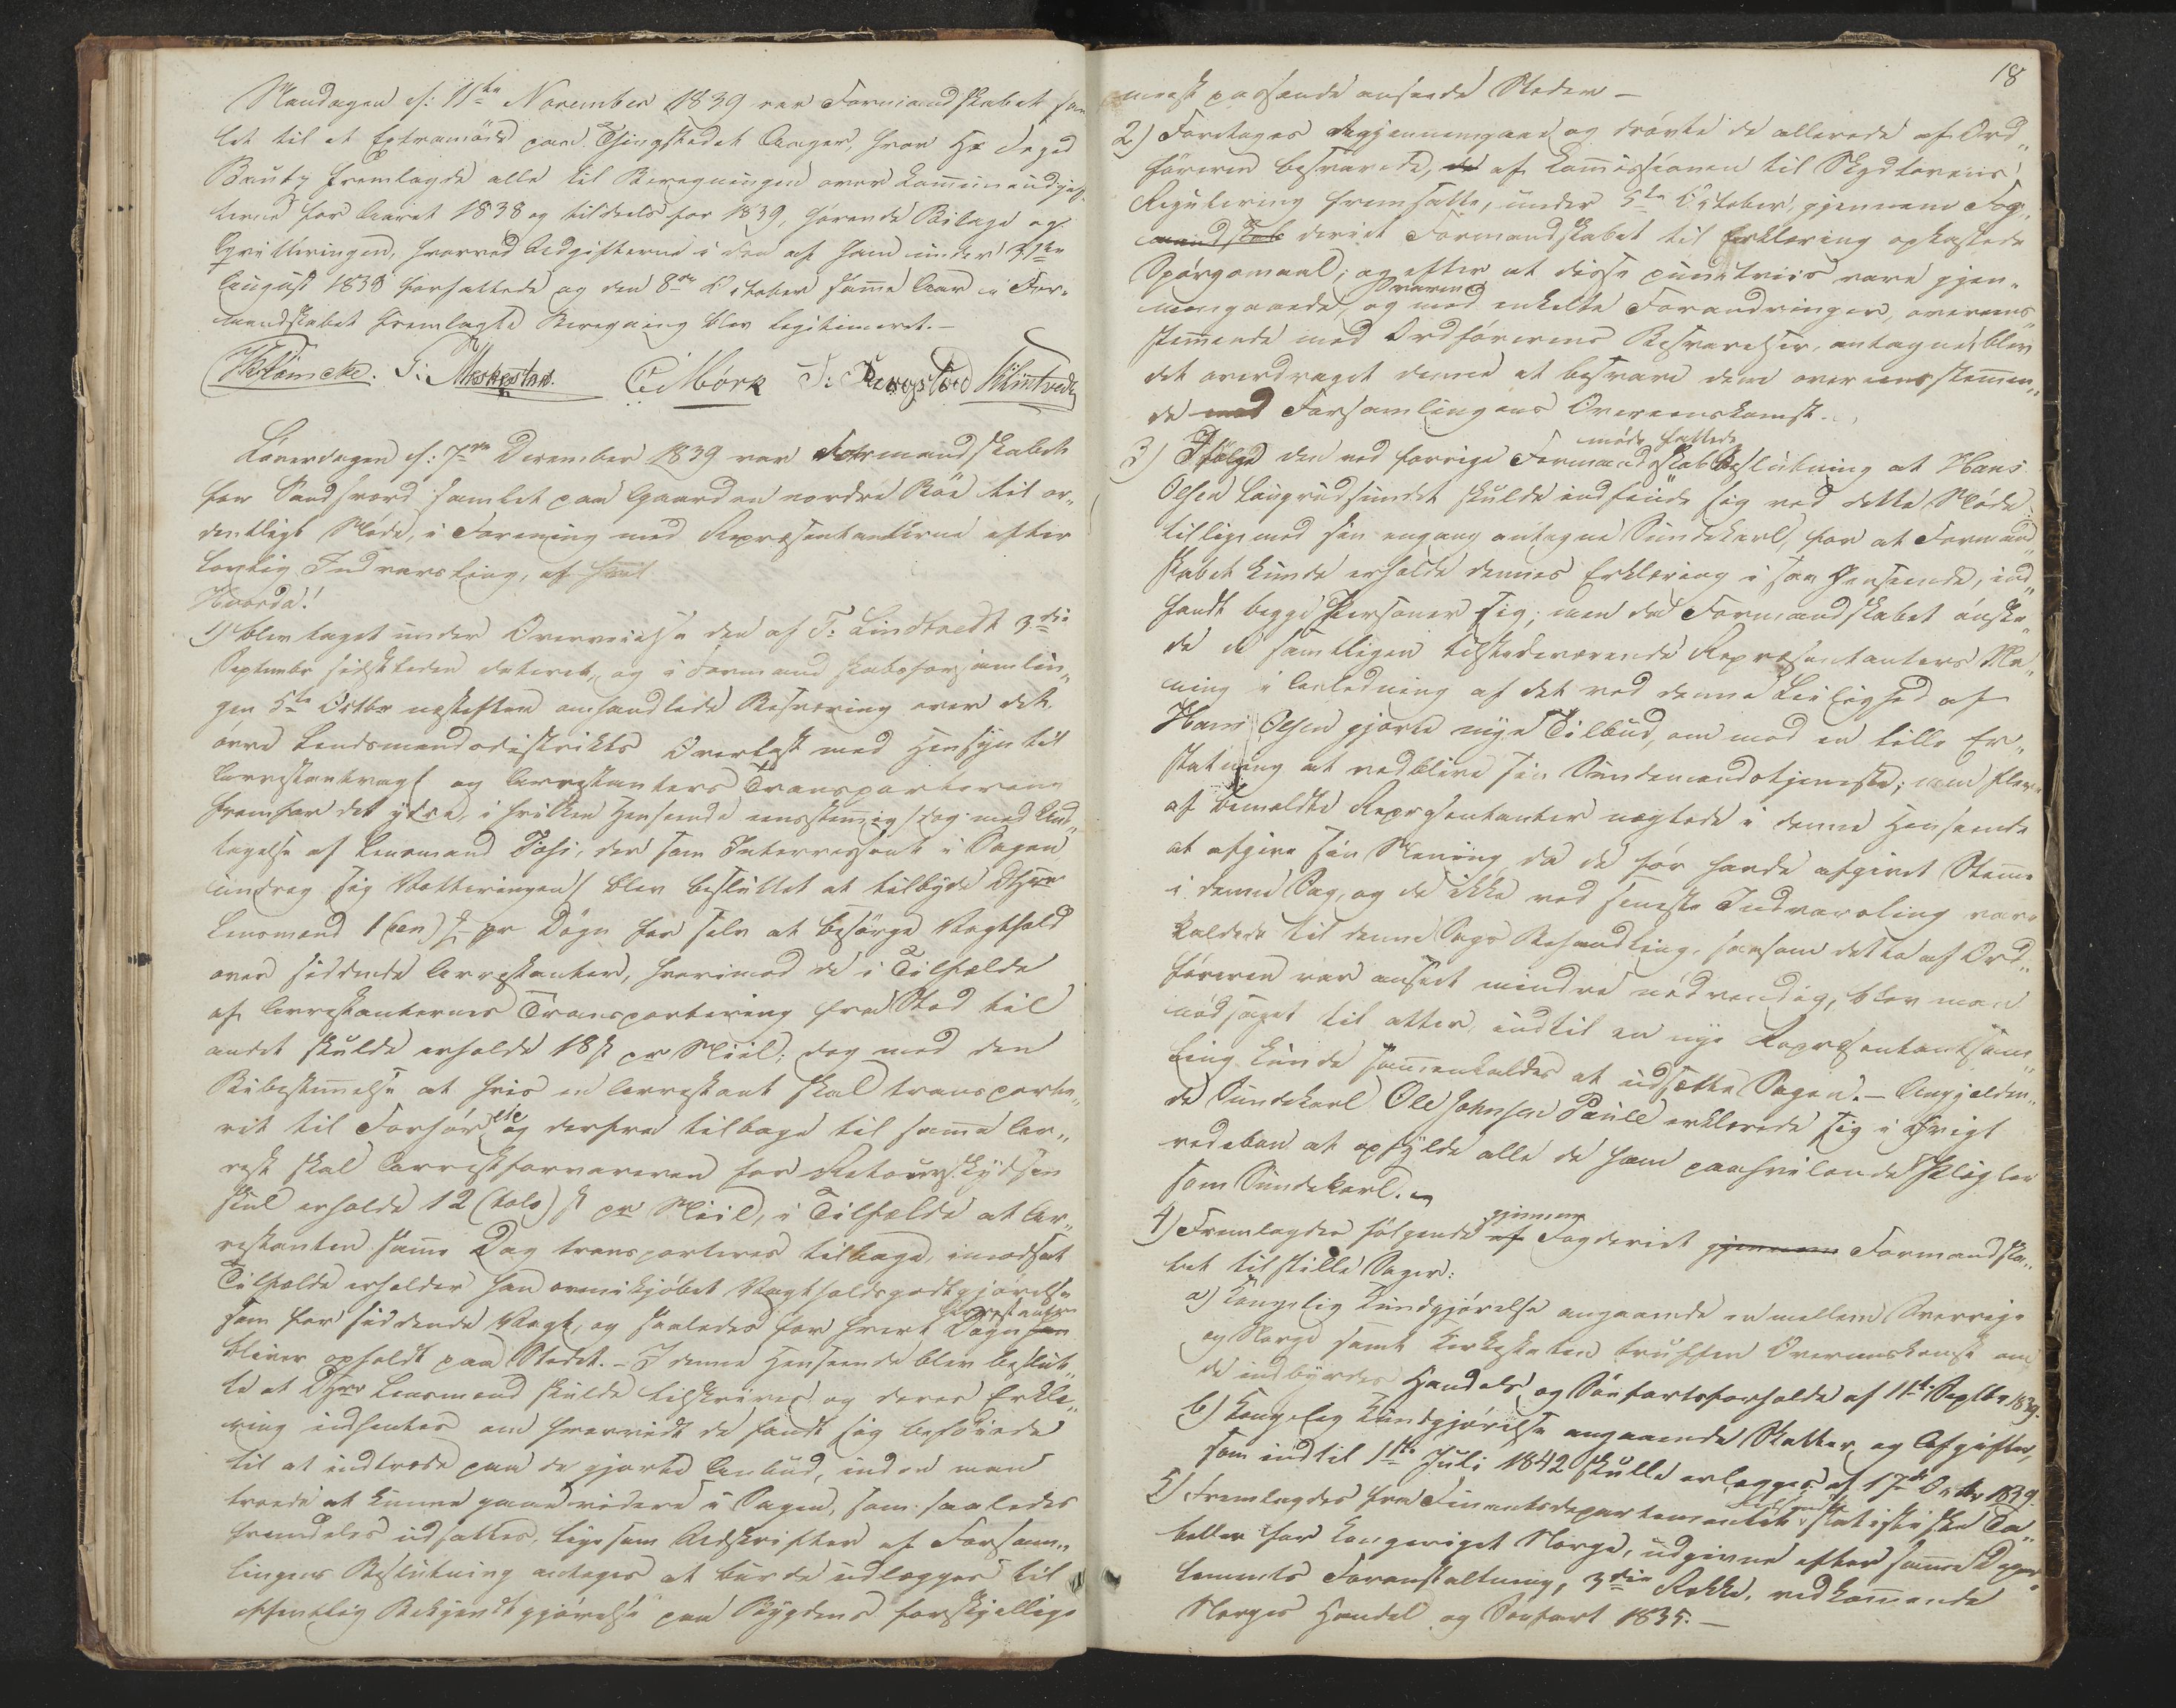 Mandagen d: 11te November 1839 var Formandskabet sam
let til et Extramöde paa Thingstedet Anger, hvor Hr
fremlagde alle til Beregningen over Kommuneudgif,,
terne for Aaret 1838 og tildeels for 1839, hörende Bilage og
Qvitteringer, hvorved Udgifterne i den af ham under 31te
August 1839 forfattede og den 8de October samme Aar i For,,
mandskabet fremlagte Beregning blev legitimeret.—
C: Mörk
Löverdagen d: 7de December 1839 var Formandskabet
for Sandsværd samlet paa Gaarden nordre Röe til or,,
dentligt Möde, i Forening med Repræsentanterne efter
lovlig Indvarsling, af
Hvorda!
1) blev taget under Overveielse den af T: Lindtvedt 3die
Septembr sidstleden daterede, og i Formandskabsforsamlin,,
gen 5te Octbr næstefter omhandlede Besværing over det
övre Lensmandsdistrikts Overlast med Hensyn til
Arrestantvagt og Arrestanters Transportering
fremfor det ydre, i hvilken Henseende eensstemmig (dog med Und,,
tagelse af Lensmand Fossi, der som Interressent i Sagen
unddrog sig Votteringen) blev besluttet at tilbyde Dhrr
Lensmænd 1 (een) pr Dögn for selv at besörge Vagthold
over siddende Arrestanter, hvorimod de i Tilfælde
af Arrestanternes Transportering fra Sted til
andet skulde erholde 18 s pr Miil; dog med den
Bibestemmelse at hvis en Arrestant skal transporte,,
res til Forhör etc og derfra tilbage til samme Ar,,
rest skal Arrestforvareren for Retourskydsen
skal erholde 12 (tolv) s pr Miil, i Tilfælde at Ar,,
restanten samme Dag transporteres tilbage, i modsat
Tilfælde erholder han Vagtholdsgodtgjörelse
som for siddende Vagt, og saaledes for hvert Dögn Arrestanten
bliver opholdt paa Stedet.— I denne Henseende blev beslut,,
tet at Dhrr Lensmænd skulde tilskrives og deres Erklæ,,
ring indhentes om hvorvidt de fandt sig beföiede
til at indtræde paa de gjorte Anbud, inden man
troede at kunne gaae videre i Sagen, som saaledes
fremdeles udsattes, ligesom Udskrifter af Forsam,,
lingens Beslutning antoges at burde udlægges til
offentlig Bekjendtgjörelse paa Bygdens forskjellige
18
meest passende ansaaede Steder —
2) Foretoges Igjennemgaae og dröfte de allerede af Ord,,
föreren besvarede, af Commissionen til Skydslovens
Regulering fremsatte, under 5te October, gjennem Fog,,
deriet Formandskabet til Erklæring opkastede
Spörgsmaal; og efter at disse punctviis vare gjen,,
nemgaaede, og med enkelte Forandringer, overeens
stemmende med Ordförerens Besvarelser, antagne, blev
det overdraget denne at besvare dem overeensstemmen,,
de med Forsamlingens Overeenskomst.
3) Ifölge den ved forrige Formandskabsmöde fattede Beslutning at Hans
Olsen Langrudsundet skulde indfinde sig ved dette Möde
tilligemed sin engang antagne Sundekarl, for at Formand
skabet kunde erholde dennes Erklæring i saa Henseende, ind,,
fandt begge Personer sig; men da Formandskabet önske,,
de de samtlige tilstedeværende Repræsentanters Me,,
ning i Anledning af det ved denne Leilighed af
Hans Olsen gjorte nye Tilbud, om mod en lille Er,,
statning at vedblive sin Sundemandstjeneste; men flere
af bemeldte Repræsentanter nægtede i denne Henseende
at afgive sin Mening da de för havde afgivet Stemme
i denne Sag, og de ikke ved seneste Indvarsling vare
kaldede til denne Sags Behandling, saasom dette af Ord,,
föreren var anseet mindre nödvendig, blev man
nödsaget til atter, indtil en nye Repræsentantsam,,
ling kunde sammenkaldes at udsætte Sagen.— Angjelden,,
de Sundekarl Ole Johnsen Paule erklærede sig i övrigt
redebon at opfylde alle de ham paahvilende Pligter
som Sundekarl.—
4) Fremlagdes fölgende gjennem Fogderiet Formandska,,
bet tilstillede Sager:
a) Kongelig Kundgjörelse angaaende en mellem Sverrige
og Norge samt Kirkestaten truffen Overeenskomst om
de indbyrdes Handels og Söefartsforholde af 11te Septbr 1839.
b) Kongelig Kundgjörelse angaaende Skatter og Afgifter,
som indtil 1ste Juli 1842 skulle erlægges af 17de Octbr 1839.
5) Fremlagdes fra Finantsdepartementet statistiske Ta,,
beller for Kongeriget Norge, udgivne efter samme Depar,,
tements Foranstaltning, 3die Række, vedkommende
Norges Handel og Söefart 1835.—